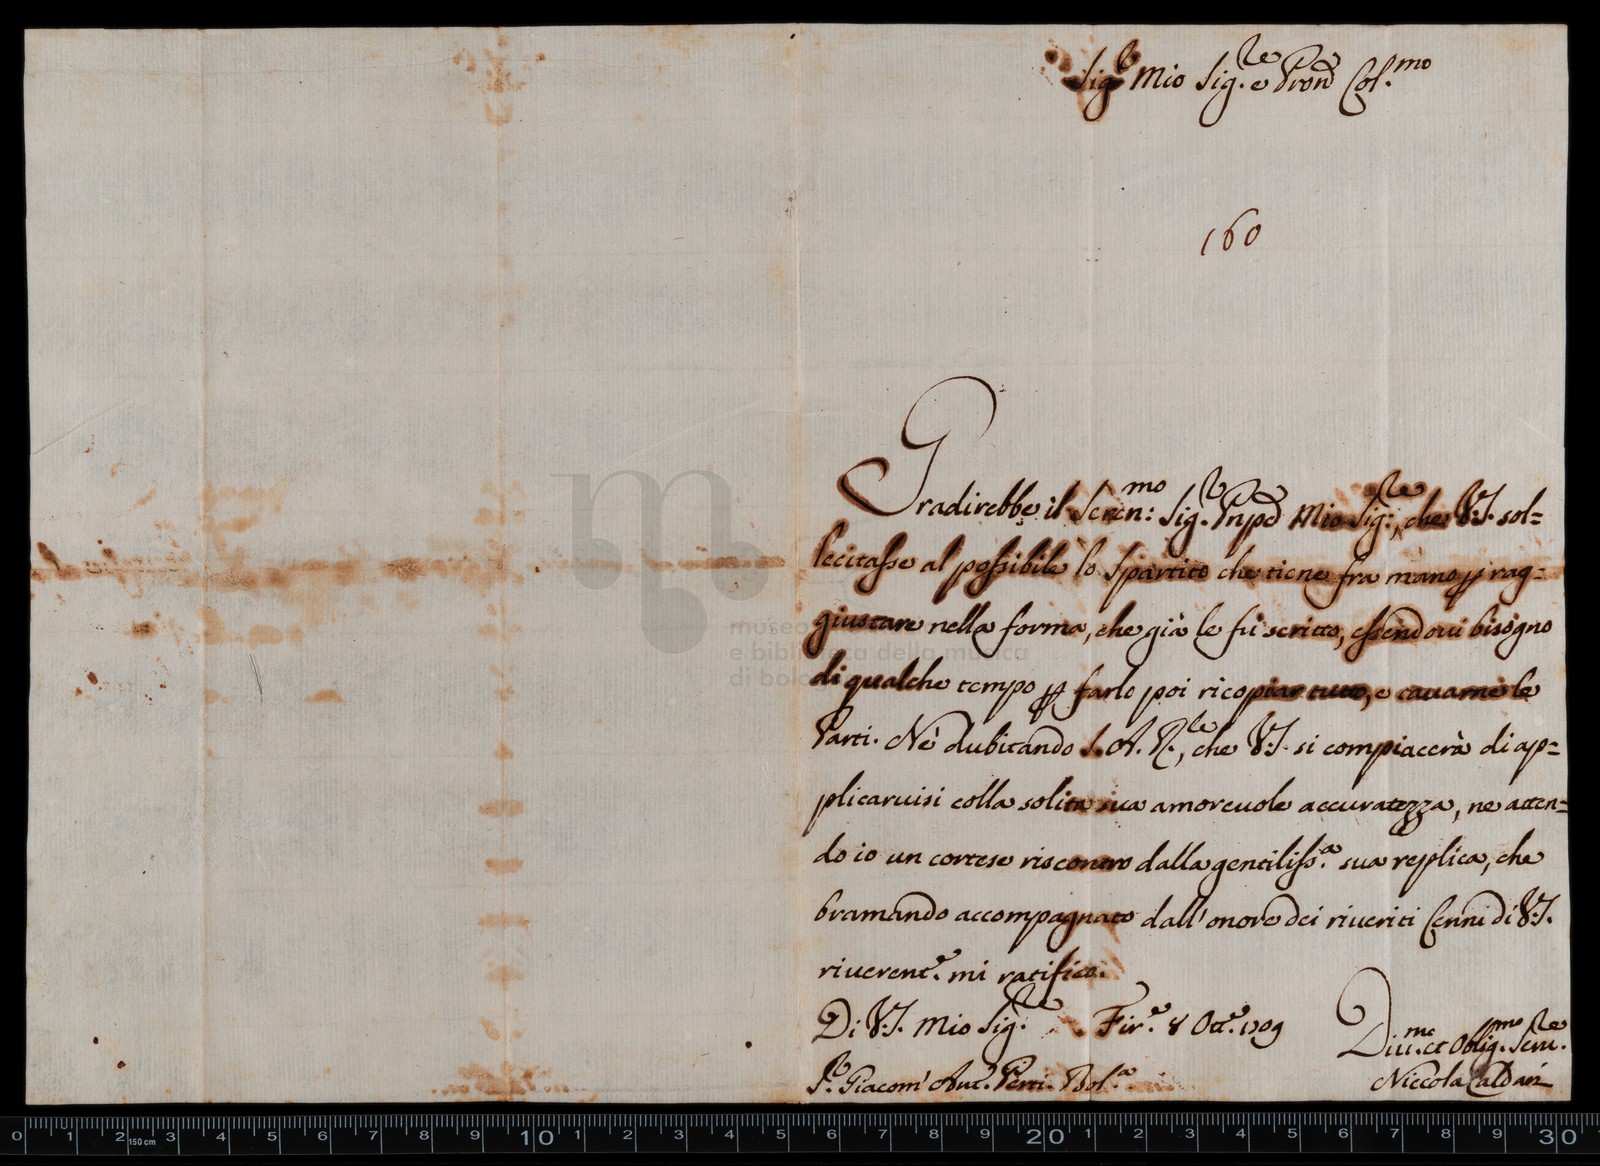 Sig.r Mio Sig.re e Pron Col.mo
160
Gradirebbe il Seren:mo Sig.r Pnpe Mio Sig:re, che V.S. sol=
lecitasse al possibile lo Spartito che tiene fra mano p rag=
giustare nella forma, che già le fù scritto, essendoui bisogno
di qualche tempo p farlo poi ricopiar tutto, e cauarne le
Parti. Nè dubitando S. A. R.le, che V.S. si compiacerà di ap=
plicaruisi colla solita sua amoreuole accuratezza, ne atten=
do io un cortese riscontro dalla gentiliss.a sua replica, che
bramando accompagnato dall'onore dei riueriti Cenni di V.S.
riuerent.e mi ratifico.
Di V.S. Mio Sig.re Fir.e 8 Ott.e 1709
S.r Giacom' Ant.o Perti. Bol.a
Diu.mo et Oblig.mo Seru.re
Niccola Caldari
museo
e biblioteca della musica
di bologna
0 1 2 150 cm 3 4 5 6 7 8 9 10 1 2 3 4 5 6 7 8 9 20 1 2 3 4 5 6 7 8 9 30